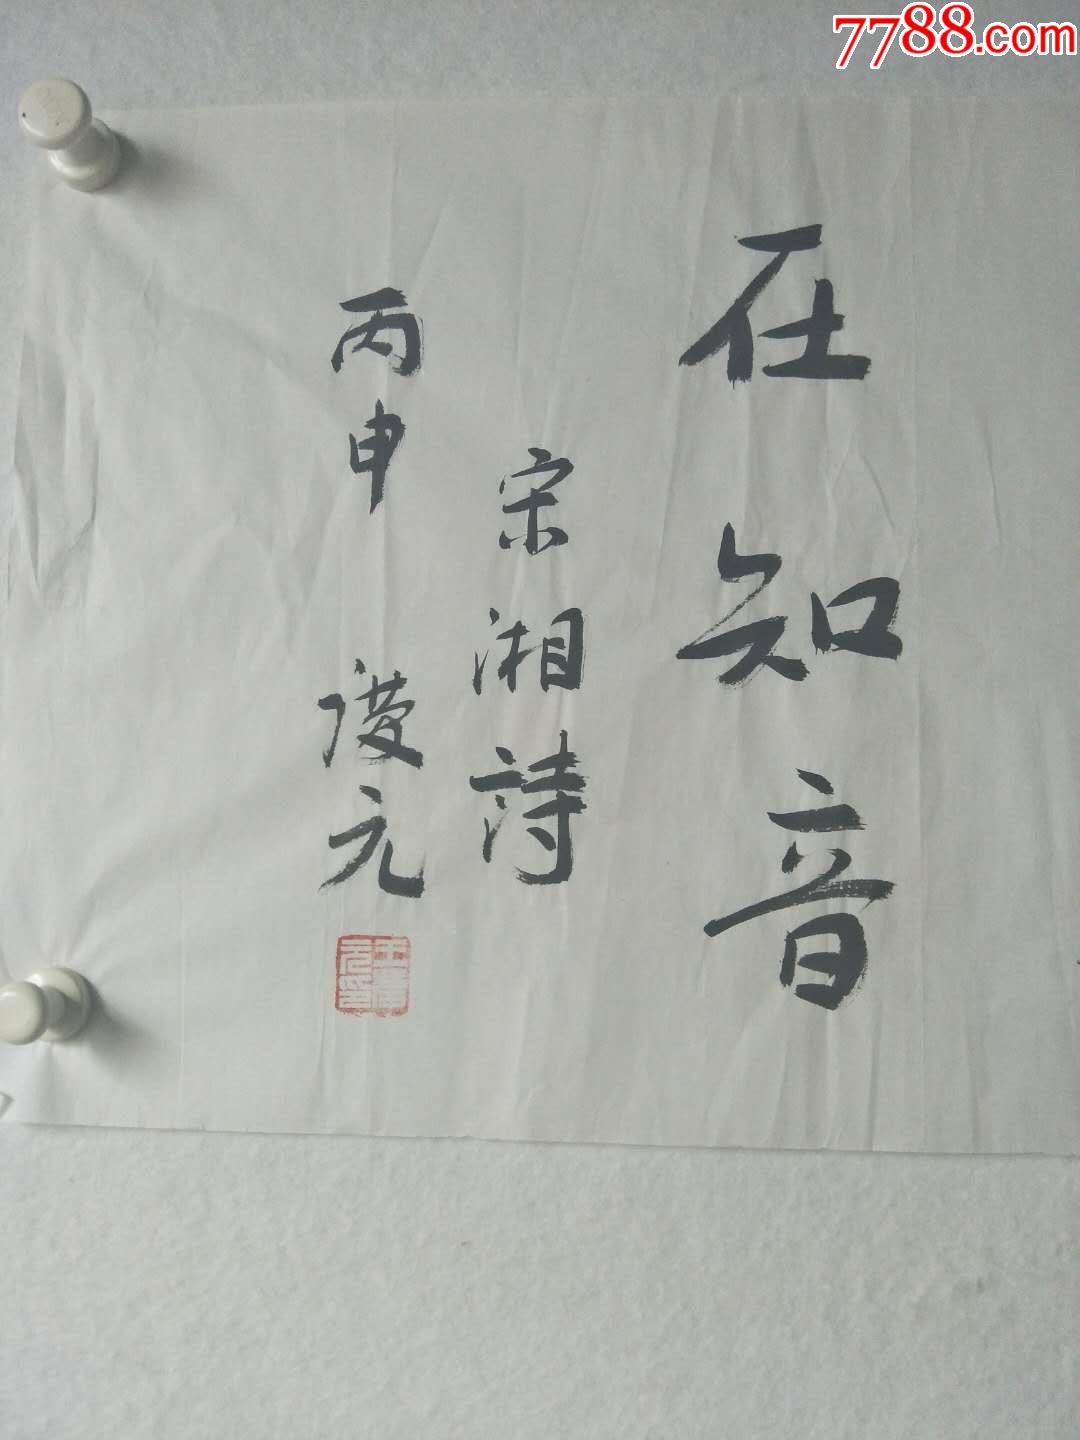 7788.com
在知音
宋湘詩
丙申 謾元